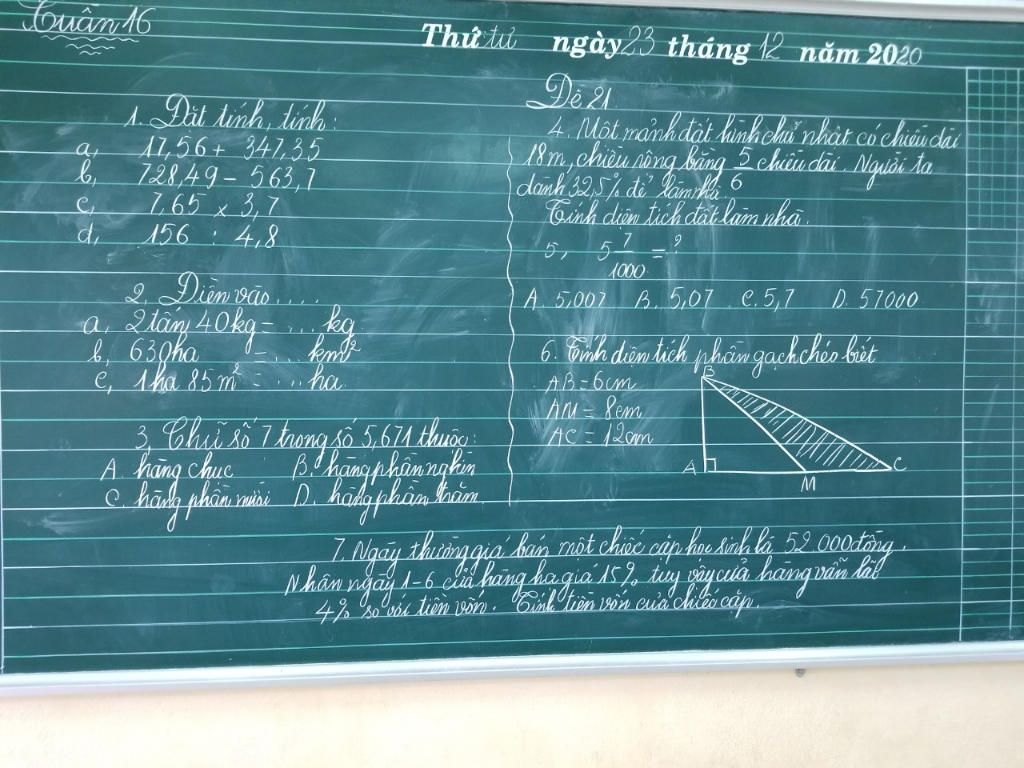 Tuần 16
Thứ tư ngày 23 tháng 12 năm 2020
Đề 21
1. Đặt tính, tính:
a, 17,56 + 347,35
b, 728,49 - 563,7
c, 7,65 x 3,7
d, 156 : 4,8
2. Điền vào ....
a, 2 tấn 40kg = ... kg
b, 630ha = ... km²
c, 1ha 85m² = ... ha
3. Chữ số 7 trong số 5,671 thuộc:
A. hàng chục B. hàng phần nghìn
C. hàng phần mười D. hàng phần trăm
4. Một mảnh đất hình chữ nhật có chiều dài
18m, chiều rộng bằng 5/6 chiều dài. Người ta
dành 32,5% để làm nhà.
Tính diện tích đất làm nhà.
5, 5 7/1000 = ?
A. 5,007 B. 5,07 C. 5,7 D. 57000
6. Tính diện tích phần gạch chéo biết
AB = 6cm
AM = 8cm
AC = 12cm
B
A
M
C
7. Ngày thường giá bán một chiếc cặp học sinh là 52 000 đồng.
Nhân ngày 1-6 cửa hàng hạ giá 15%, tuy vậy cửa hàng vẫn lãi
4% so với tiền vốn. Tính tiền vốn của chiếc cặp.